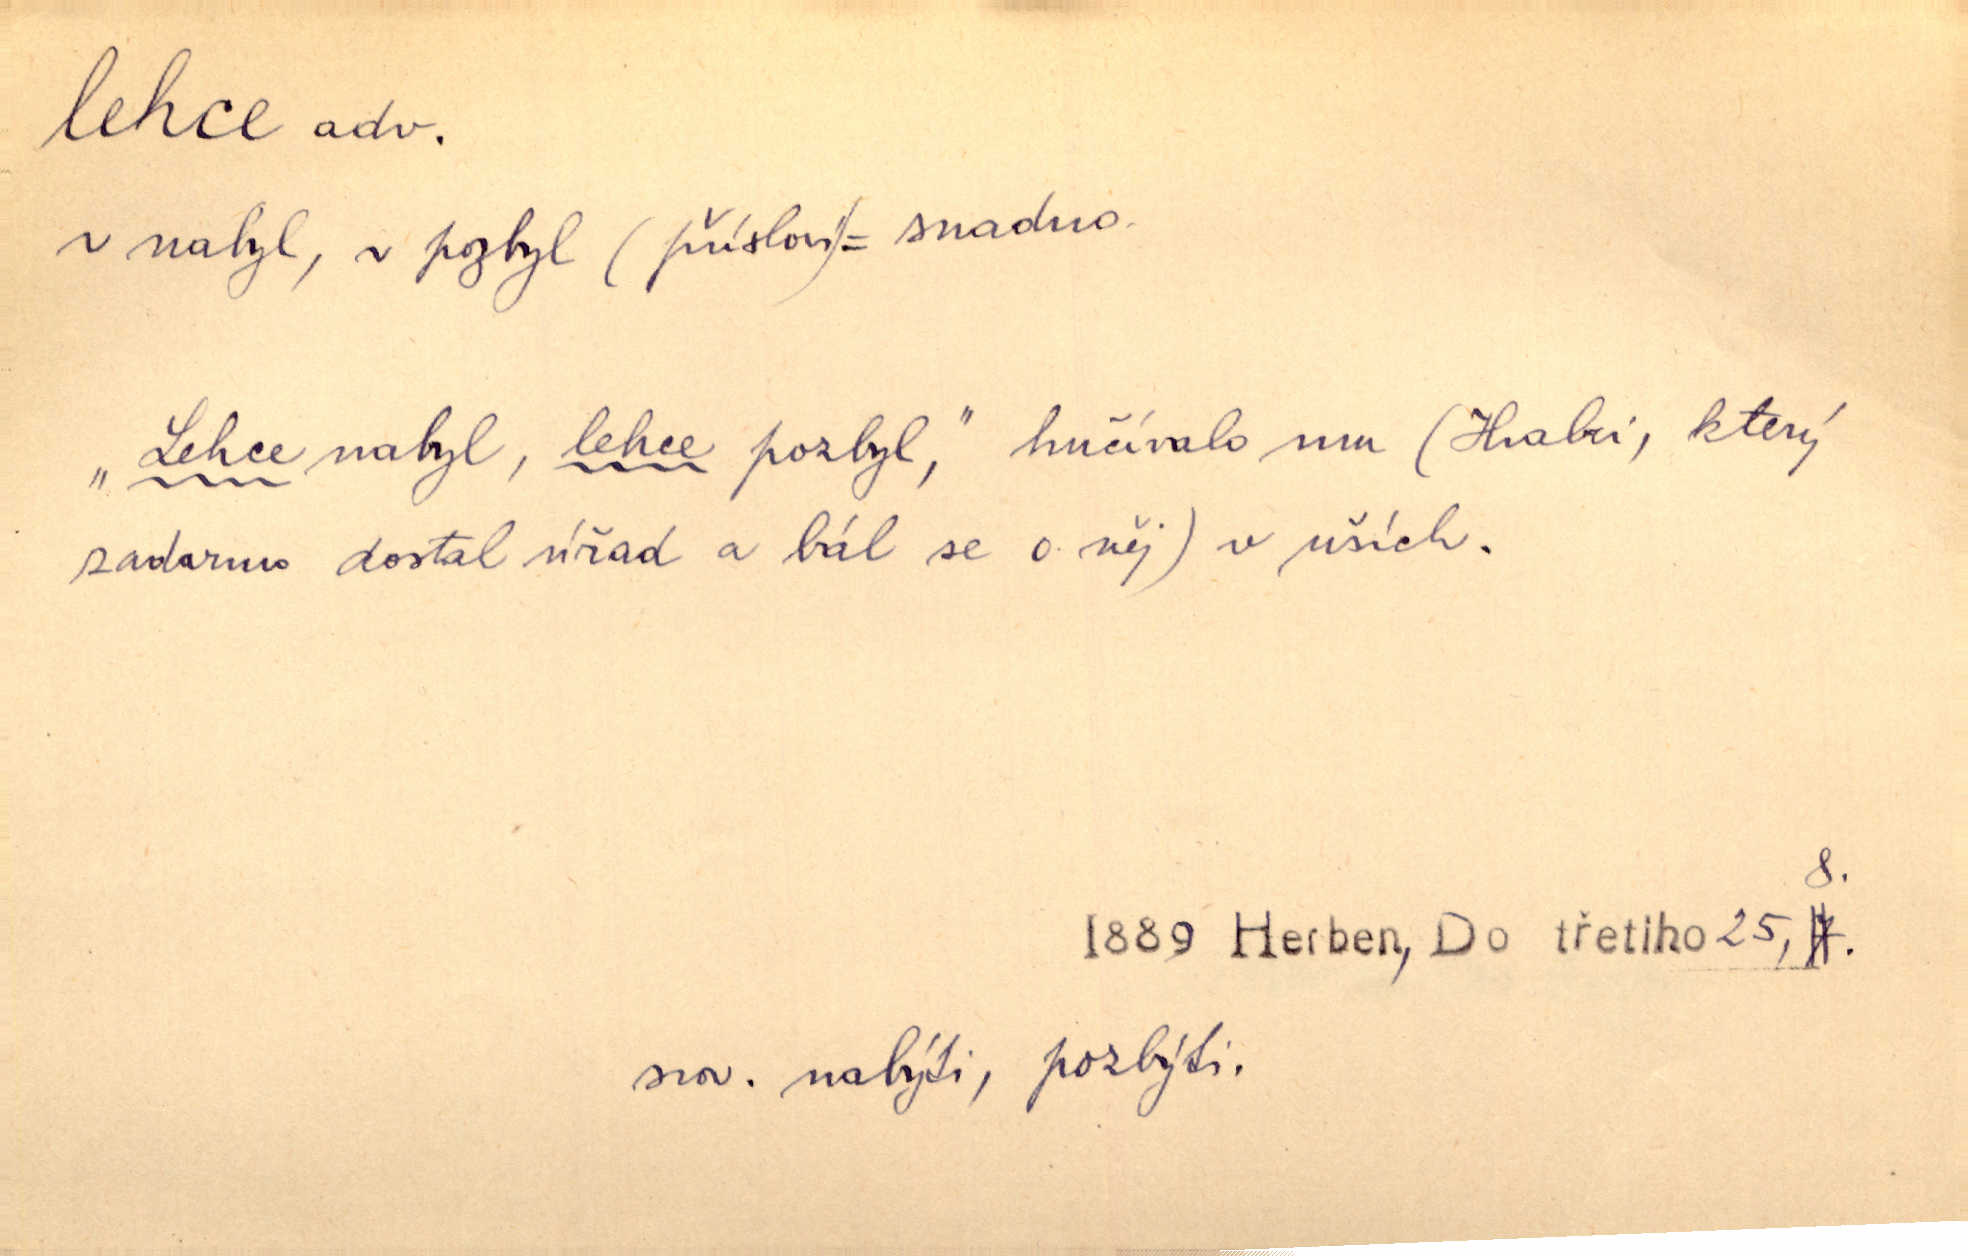 lehce adv.
~ nabyl, ~ pozbyl (přísloví) = snadno.
„Lehce nabyl, lehce pozbyl," hučívalo mu (Hrabci, který
zadarmo dostal úřad a bál se o něj) v uších.
8.
1889 Herben, Do třetiho 25,
srov. nabýti, pozbýti.